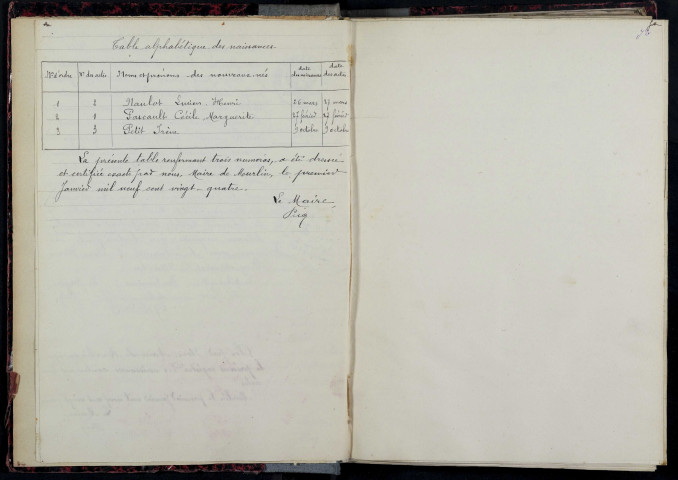 Table alphabétique des naissances.
Nos d'ordre Nos des actes Noms et prénoms des nouveaux nés date des naissances date des actes
1 2 Naulot Lucien Henri 26 mars 27 mars
2 1 Pascault Cécile Marguerite 27 février 27 février
3 3 Petit Irène 3 octobre 3 octobre
La présente table renfermant trois numéros, a été dressée
et certifiée exacte par nous, Maire de Mourlin, le premier
Janvier mil neuf cent vingt-quatre.
Le Maire,